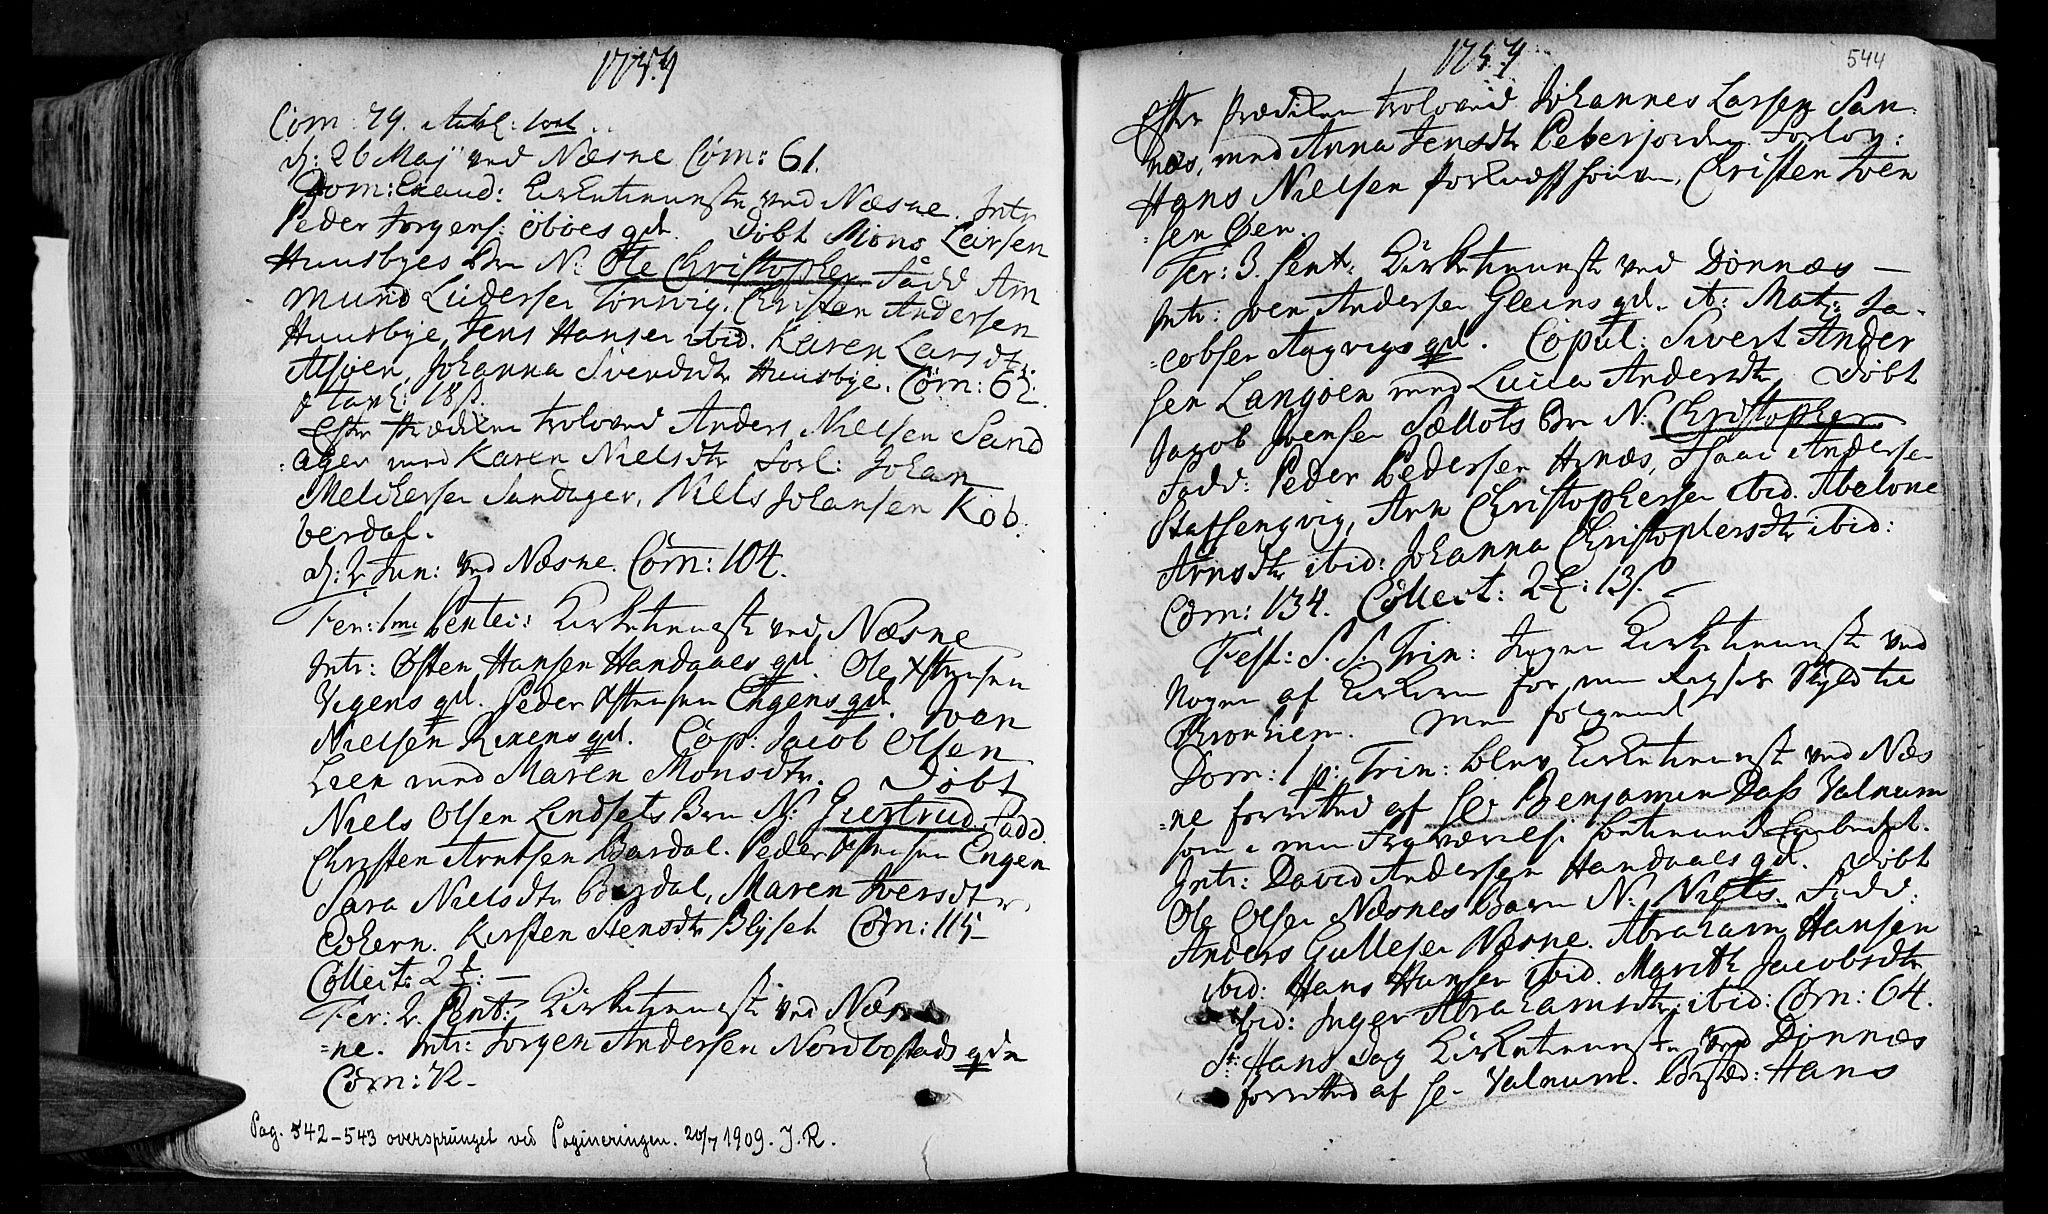 1754
Com: 79.
d: 26 Maj ved Næsne Com: 61.
Dom: Exaud: Kirketienste ved Næsne. Intr
Peder Jørgens: Öböes qd. Döbt Mons Larsen
Huusbyes Brn N: Ole Christopher Fadd Am
mund Lüdersen Tönvig. Christen Andersen
Huusbye, Jens Hansen ibid. Karen Larsdtr
Alsöen, Johanna Svendsdtr Huusbye. Com: 62.
18 ß.
Efter Prædiken troloved Anders Nielsen Sand
ager med Karen Nielsdtr Forl: Johan
Melchersen Sandager, Niels Johansen Kob
berdal.
d: 2 Jun: ved Næsne. Com: 104.
Fer: 1me Pentec: Kirketienste ved Næsne
Intr: Østen Hansen Handaaes qd. Ole Xstensen
Vigens qd. Peder Xstensen Engens qd. Iven
Nielsen Rixens qd. Cop: Jacob Olsen
Leen med Maren Monsdtr. Döbt
Niels Olsen Lindsets Brn N: Giertrud. Fadd
Christen Arntsen Bardal. Peder Xstensen Engen
Sara Nielsdtr Bardal, Maren Iversdtr
Kirsten Stensdtr Blÿset Com: 115
Collect: 2
Fer: 2. Pent: Kirketienste ved Næs
=ne. Intr: Jørgen Andersen Nordbostads qde
Com: 72.
Pag. 542–543 oversprunget ved Pagineringen. 20/7 1909. J. R.
1754
544
Efter Prædiken troloved Johannes Larsen San
næs, med Anna Jensdtr Peberjorden Forlov:
Hans Nielsen Christen Iven
=sen Öen.
Fer: 3. Pent: Kirketienste ved Dönnæs —
Intr: Iven Andersen Gleins qd. it: Mat: Ja
=cobsen Aagvigs qd. Copul: Sivert Ander
sen Langöen med Lucia Andersdtr Döbt
Jacob Ivensen Sællots Brn N: Christopher
Fadd: Peder Pedersen Hvnæs, Isaac Andersen
Staffengvig, Arn Christophersen ibid. Abelone
Arnsdtr ibid: Johanna Christophersdtr ibid:
Com: 134. Collect: 2 : 13 ß —
Fest: S. S. Trin: Ingen Kirketienste ved
Nogen af Kirkerne for min Reyses Skyld til
Tronhiem. Men folgend
Dom: 1 p: Trin: blev Kirketienste ved Næs
=ne forretted af Hr Benjamin Dass Valnum
som i min Fraværelse betiente Embedet.
Intr: David Andersen Handaaes qd. Döbt
Ole Olsen Næsnes Barn N: Niels. Fadd:
Anders Gullesen Næsne. Abraham Hansen
ibid: Hans Hansen ibid. Marith Jacobsdtr
ibid: Inger Abrahamsdtr ibid: Com: 64.
St: Hans Dag Kirketienste ved Dönnæs
forretted af Hr Valnum. Hans